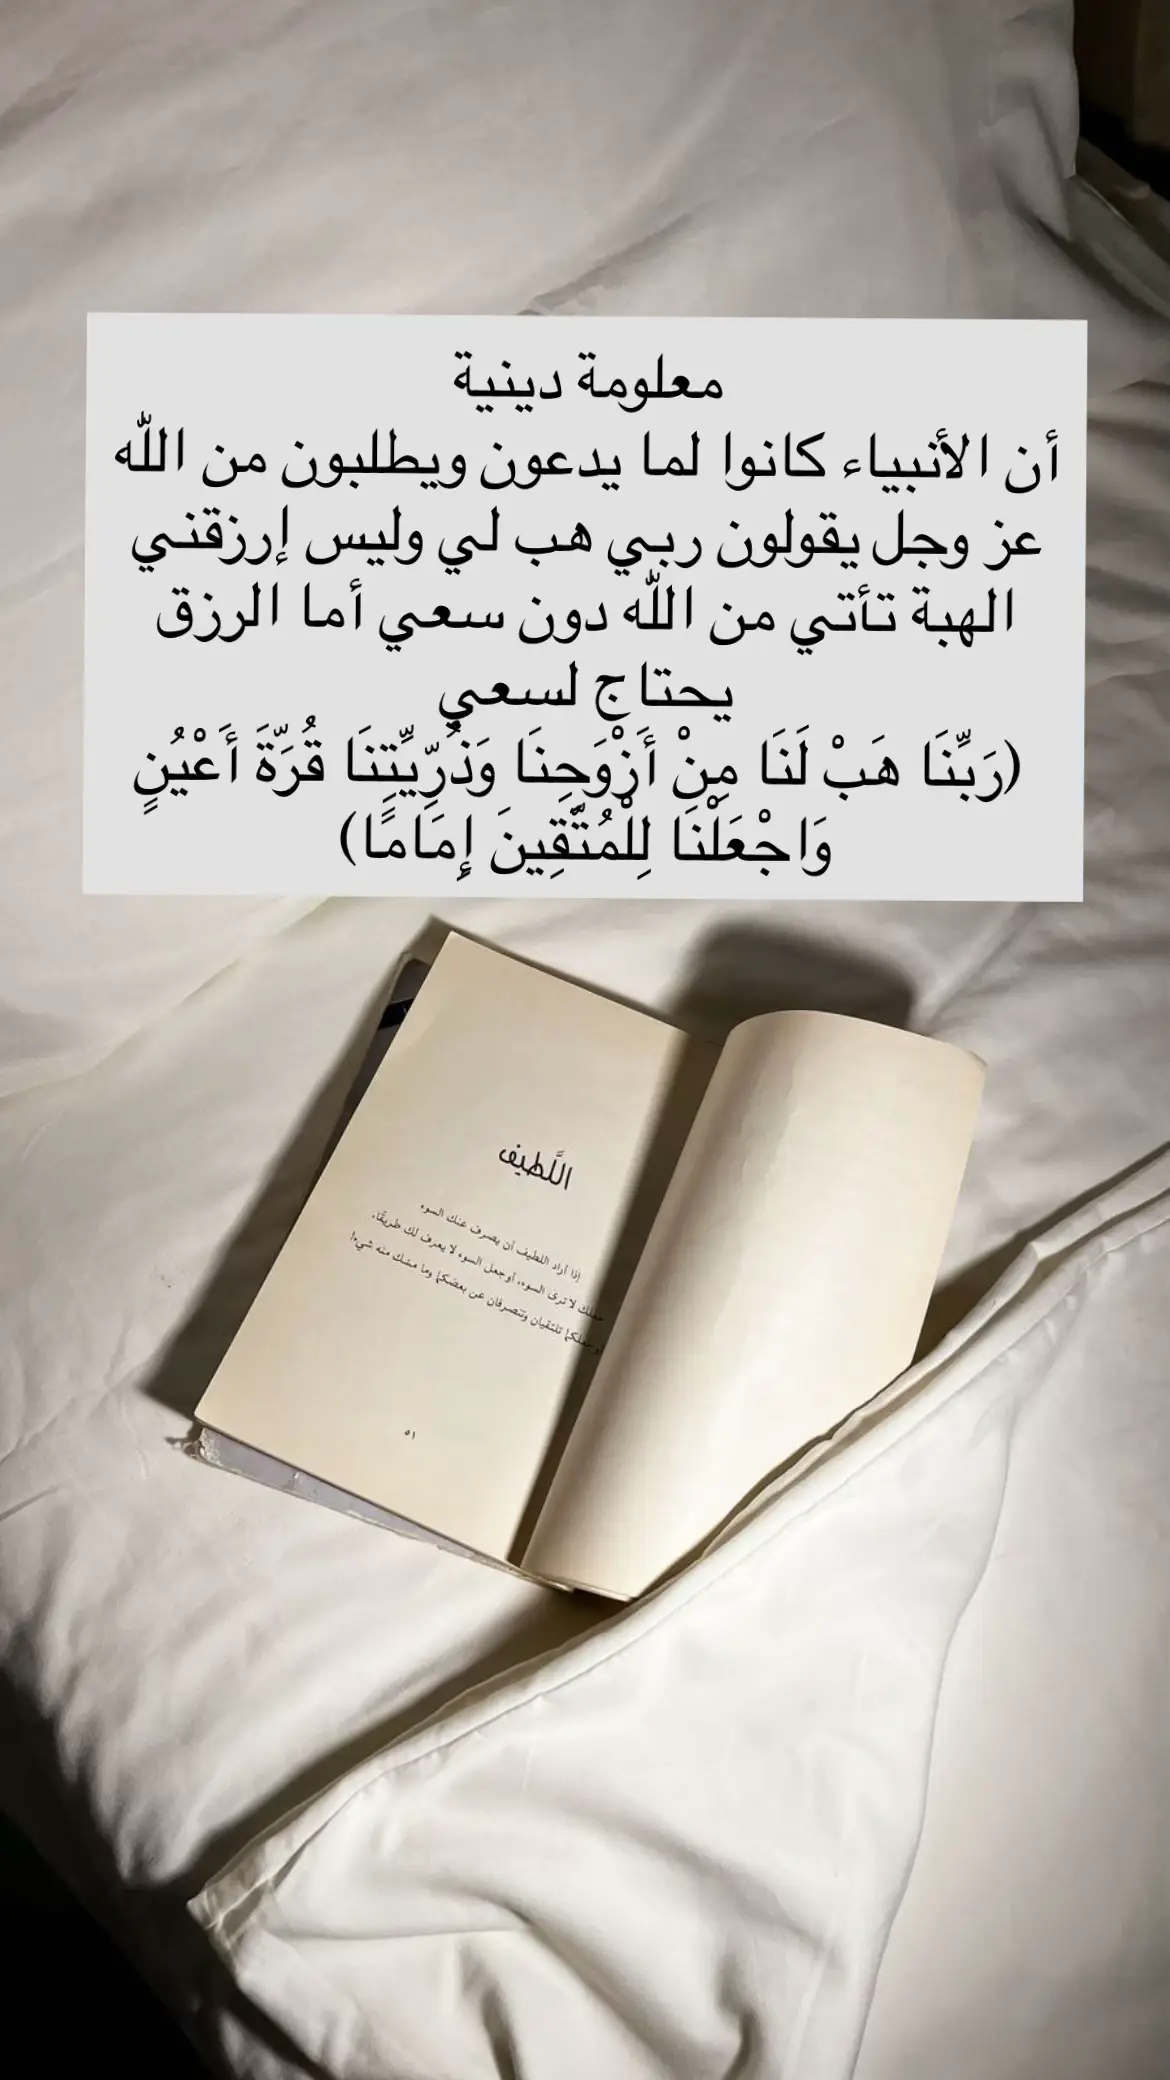 معلومة دينية
أن الأنبياء كانوا لما يدعون ويطلبون من الله
عز وجل يقولون ربي هب لي وليس إرزقني
الهبة تأتي من الله دون سعي أما الرزق
يحتاج لسعي
(رَبِّنَا هَبْ لَنَا مِنْ أَزْوَجِنَا وَذُرِّيَّتِنَا قُرَّةَ أَعْيُنٍ
وَاجْعَلْنَا لِلْمُتَّقِينَ إِمَامًا)
اللَّطيف
إذا أراد اللطيف أن يصرف عنك السوء
جعلك لا ترى السوء، أو جعل السوء لا يعرف لك طريقًا،
أو جعلكما تلتقيان وتنصرفان عن بعضكما وما مسّك منه شيء!
٥١